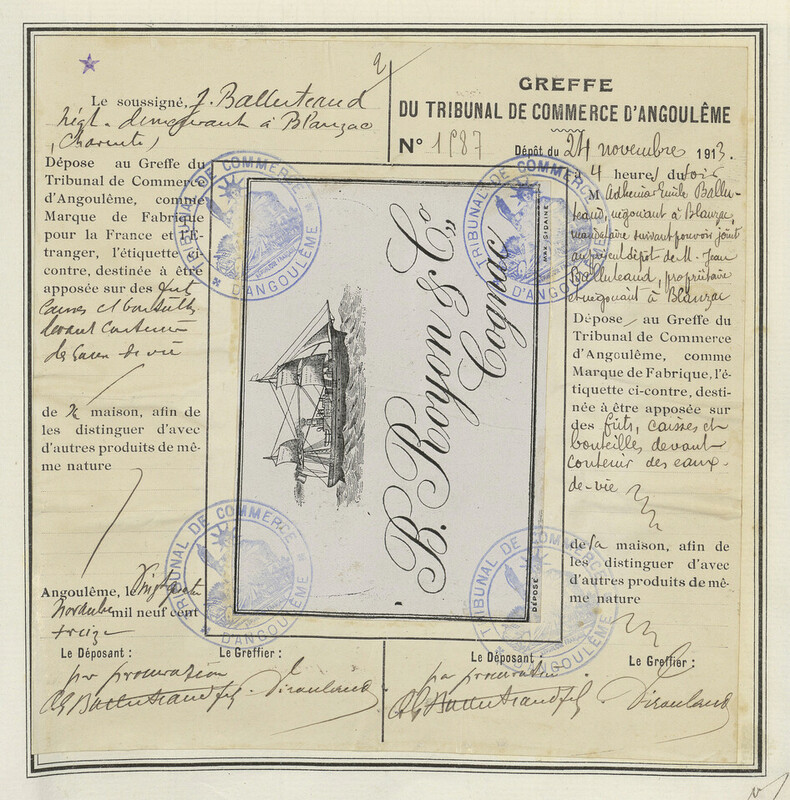 2
Le soussigné, J. Balluteaud
négt. demeurant à Blanzac
(Charente)
Dépose au Greffe du
Tribunal de Commerce
d'Angoulême, comme
Marque de Fabrique
pour la France et l'É-
tranger, l'étiquette ci-
contre, destinée à être
apposée sur des fut
caisses et bouteilles
devant contenir
de eaux de vie
de sa maison, afin de
les distinguer d'avec
d'autres produits de mê-
me nature
Angoulême, le vingt quatre
Novembre mil neuf cent
treize
Le Déposant : Le Greffier :
par procuration
Balluteaud fils
GREFFE
DU TRIBUNAL DE COMMERCE D'ANGOULÊME
N° 1987 Dépôt du 24 novembre 1913.
4 heures du soir
M Adhémar Emile Ballu-
teaud, négociant à Blanzac,
mandataire suivant pouvoir joint
au présent dépôt de M. Jean
Balluteaud, propriétaire
et négociant à Blanzac
Dépose au Greffe du
Tribunal de Commerce
d'Angoulême, comme
Marque de Fabrique, l'é-
tiquette ci-contre, desti-
née à être apposée sur
des fûts, caisses et
bouteilles devant
contenir des eaux-
de-vie
de sa maison, afin de
les distinguer d'avec
d'autres produits de mê-
me nature
Le Déposant : Le Greffier :
par procuration
Balluteaud fils
B. Royon & Co
Cognac
DÉPOSÉ
TRIBUNAL DE COMMERCE D'ANGOULÊME
TRIBUNAL DE COMMERCE D'ANGOULÊME
TRIBUNAL DE COMMERCE D'ANGOULÊME
TRIBUNAL DE COMMERCE D'ANGOULÊME